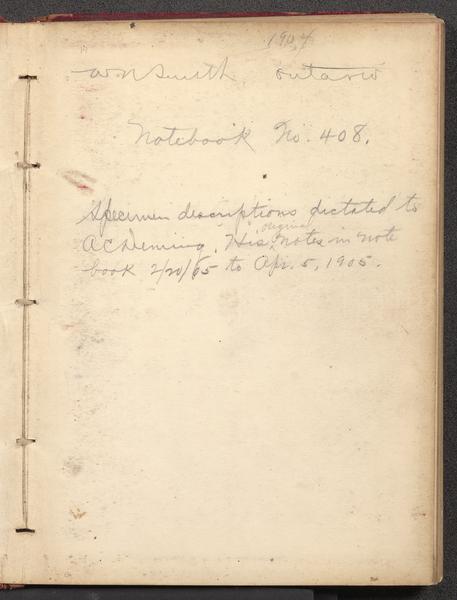 1904
W N Smith Ontario
Notebook No. 408.
Specimen descriptions dictated to
A C Deming. His original notes in note
book 2/20/05 to Apr. 5, 1905.